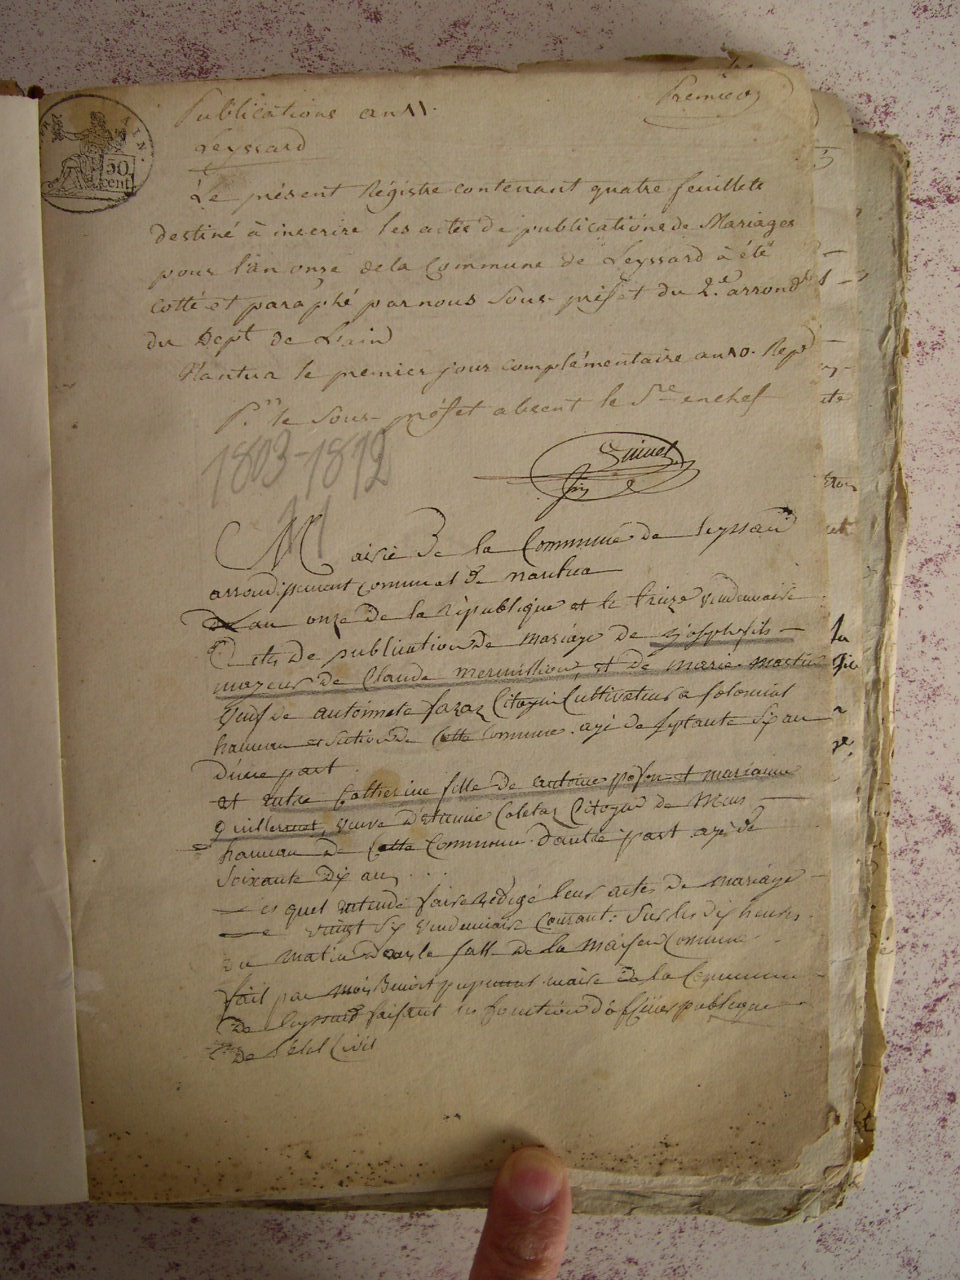 Publications an 11.
Premier
Leyssard
AIN.
50
cent
Le présent Régistre contenant quatre feuillets
destiné à inscrire les actes de publications de Mariages
pour l'an onze de la Commune de Leyssard à été
cotté et paraphé par nous Sous-préfet du 2.e arrondt
du Dept de L'ain
Nantua le premier jour complémentaire an 10. Rep
P.r le Sous-préfet absent le Sre en chef
1803-1812
11
Mairie de la Commune de leyssard
arrondissement communal de nantua
an onze de la République et le treize vendemiaire
actes de publication de mariage de joseph fils
majeur de Claude mermillion, et de marie martin
veuf de antoinete Citoyin Cultivateur a solomiat
hameau et section de Cette Commune. agé de septante six an
d'une part
et entre Catherine fille de antoine et marianne
Guillermet, veuve d'Etienne Citoyen de
hameau de Cette Commune d'autre part agé de
soixante dix an
es quel entende faire redigé leur actes de mariage
le vaingt six vendemiaire Courant. sur les dix heures
du matin dans le salle de la maison Commune
fait par moi Benoit maire de la Commune
de leyssard faisant les fonction d'officier publique
de l'état Civil